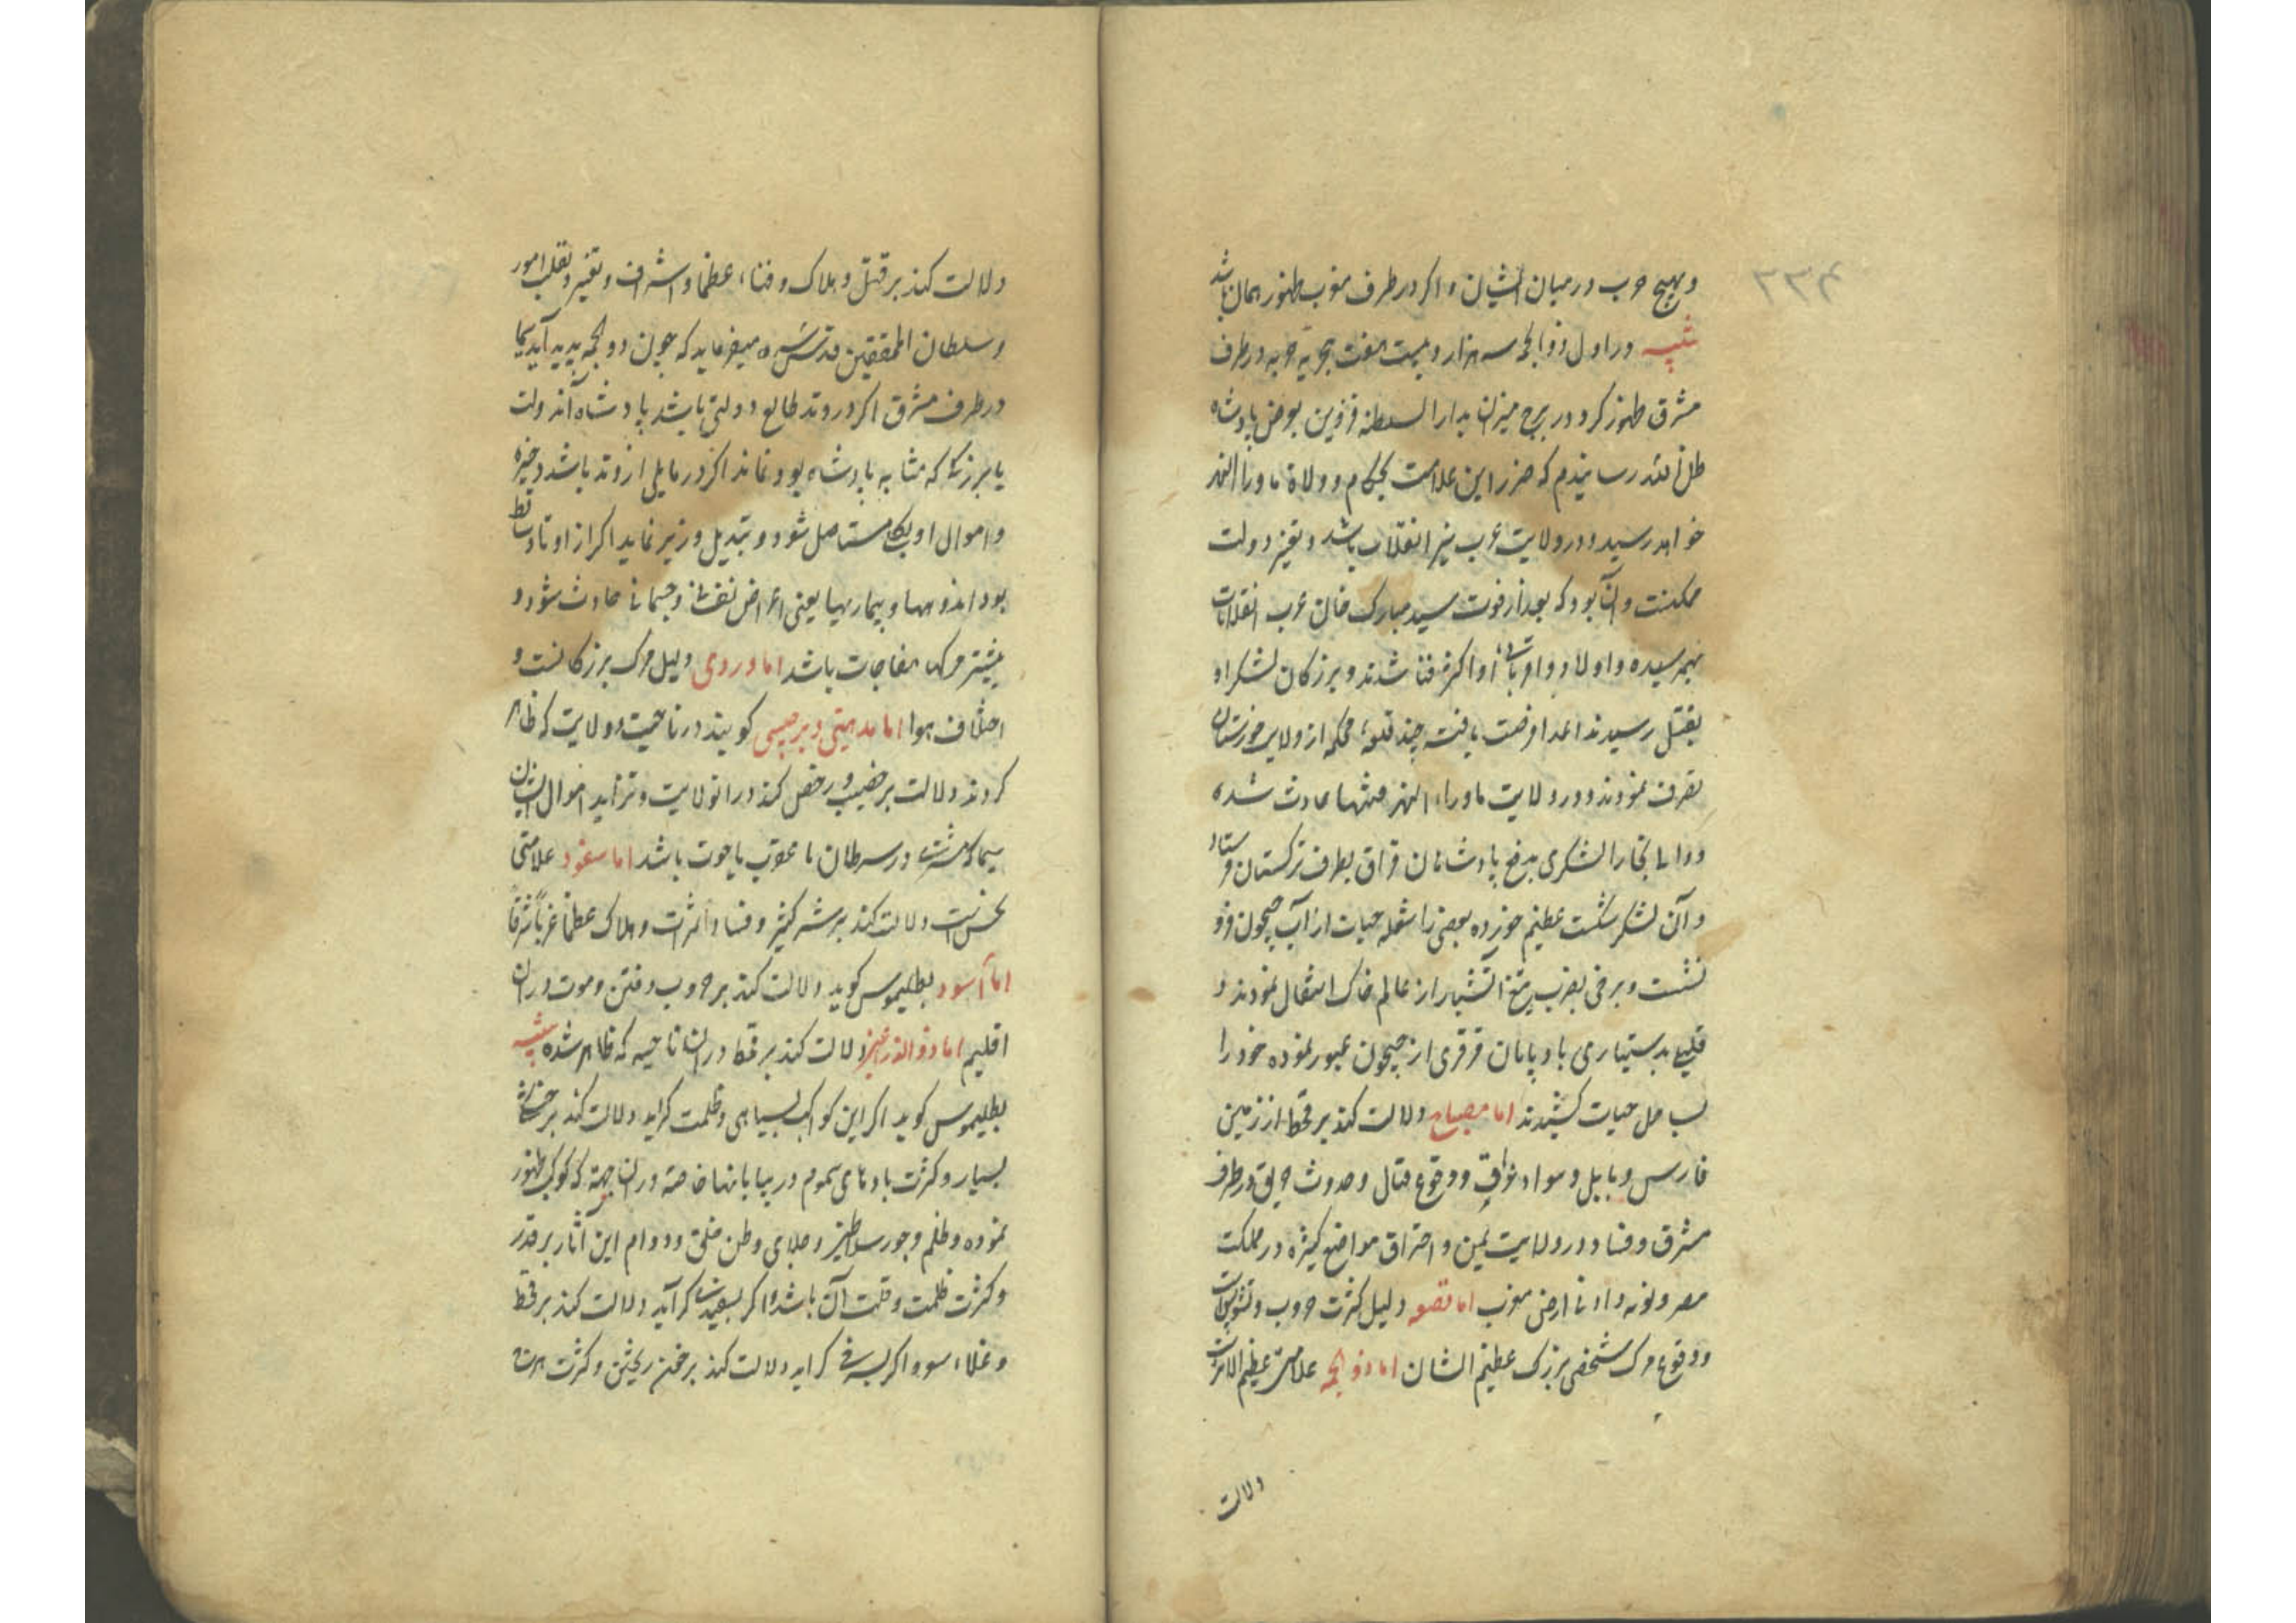 ۳۳۴
و هیچ حرب در میان ایشان و اکر در طرف مغرب ظهور همان باشد
تنبیه در اول ذوالحجه سنه هزار و بیست هفت هجریه حربه در طرف
مشرق ظهور کرد در برج میزان بدارالسلطنه قزوین بعرض پادشاه
ظل الله رسانیدم که ضرر این علامت بحکام و ولاة ماورا النهر
خواهد رسید و در ولایت عرب نیز انقلاب باشد و تغیر دولت
ممکنست و آن بود که بعد از فوت سید مبارک خان عرب انقلابات
بهمرسیده و اولاد و اقرباء او اکثر فنا شدند و بزرکان لشکر او
بقتل رسیدند اعدا فرصت یافته چند قلعه محکمه از ولایت خوزستان
تصرف نمودند و در ولایت ماوراء النهر فتنها حادث شده
و والی بخارا لشکری بدفع پادشاهان قزاق بطرف ترکستان فرستاد
و آن لشکر شکست عظیم خورده بعضی را شعله حیات از آب جیحون فرو
نشست و برخی بضرب تیغ آتشبار از عالم خاک انتقال نمودند و
قلیلی بدستیاری باد پایان از جیحون عبور نموده خود را
بساحل حیات کشیدند اما مصباح دلالت کند بر قحط از زمین
فارس و بابل و سواد عراق و وقوع قتال و حدوث حریق در طرف
مشرق و فساد در ولایت یمن و احتراق مواضع کثیره در مملکت
مصر و نوبه و ادانی ارض مغرب اما قصعه دلیل کثرت حروب و تشویشات
و وقوع مرک شخصی بزرک عظیم الشان اما ذو الجمه علامتی عظیم الاثرات
دلالت
دلالت کند بر قتل و هلاک و فناء عظما و اشراف و تغییر و تقلب امور
و سلطان المحققین قدس سره میفرماید که چون ذو لجمه پدید آید سیما
در طرف مشرق اکر در وتد طالع دولتی باشد پادشاه آندولت
یا بزرکی که مشابه پادشاه بود نماند اکر در مایلی از وتد باشد ذخیره
و اموال او بکلی مستاصل شود و تبدیل وزیر نماید اکر از اوتاد ساقط
بود اندوهها و بیماریها یعنی اعراض نفسانی و جسمانی حادث شود و
بیشتر مرکها مفاجات باشد اما وردی دلیل مرک بزرکانست و
اختلاف هوا اما مدهینی و برجیسی کویند در ناحیت و ولایت که ظاهر
کردند دلالت بر خصب و رخص کند در انولایت و تزاید اموال ایشان
سیما که مشتری در سرطان یا عقرب یا حوت باشد اما سفود علامتی
نحس است دلالت کند بر شر کثیر و فساد اثمرات و هلاک عظما غربا و شرقا
اما اسود بطلیموس کوید دلالت کند بر حروب و فتن و موت در ان
اقلیم اما ذو الذرعین دلالت کند بر قحط در ان ناحیه که ظاهر شده تنبیه
بطلیموس کوید اکر این کواکب بسیاهی و ظلمت کراید دلالت کند بر
بسیار و کثرت بادهای سموم در بیابانها خاصه در ان جهة که کوکب ظهور
نموده و ظلم و جور سلاطین و جلای وطن خلق و دوام این آثار بر قدر
و کثرت ظلمت و قلت آن باشد و اکر بسفیدی کرآید دلالت کند بر قحط
و غلاء سود اکر بسرخی کراید دلالت کند بر خون ریختن و کثرت